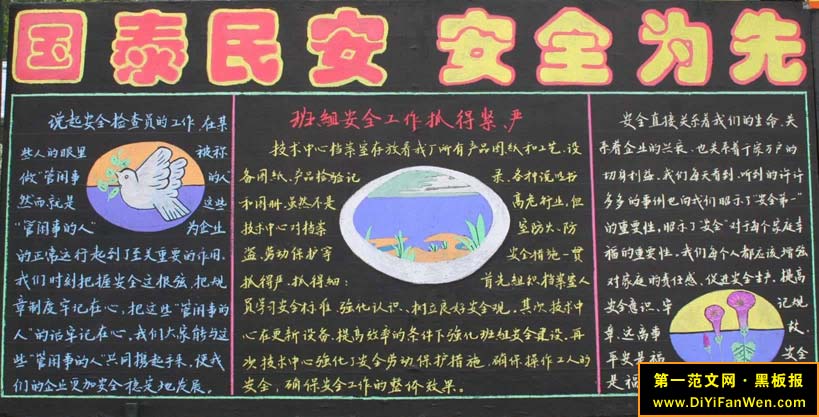 国泰民安 安全为先
说起安全检查员的工作,在某
些人的眼里 被称
做"管闲事 的人"
然而就是 这些
"管闲事的人" 为企业
的正常运行起到了至关重要的作用。
我们时刻把握安全这根弦,把规
章制度牢记在心,把这些"管闲事的
人"的话牢记在心,我们大家能与这
些"管闲事的人"共同携起手来,使我
们的企业更加安全稳定地发展。
班组安全工作抓得紧、严
技术中心档案室存放着我厂所有产品图纸和工艺、设
备图纸、产品检验记 录、各种说明书
和图册,虽然不是 高危行业,但
技术中心对档案 室防火、防
盗、劳动保护等 安全措施一贯
抓得严、抓得细: 首先组织档案室人
员学习安全标准、强化认识、树立良好安全观。其次技术中
心在更新设备、提高效率的条件下强化班组安全建设。再
次技术中心强化了安全劳动保护措施,确保操作工人的
安全,确保安全工作的整体效果。
安全直接关系着我们的生命,关
系着企业的兴衰,也关系着千家万户的
切身利益。我们每天看到、听到的许许
多多的事例也向我们昭示了"安全第一"
的重要性,昭示了"安全"对于每个家庭幸
福的重要性。我们每个人都应该增强
对家庭的责任感,促进安全生产,提高
安全意识,牢 记规
章,远离事 故,
平安是福 安全
是福
第一范文网·黑板报
www.DiYiFanWen.com